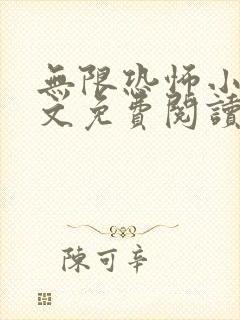 無限恐怖小
文免費閱讀
陳可辛